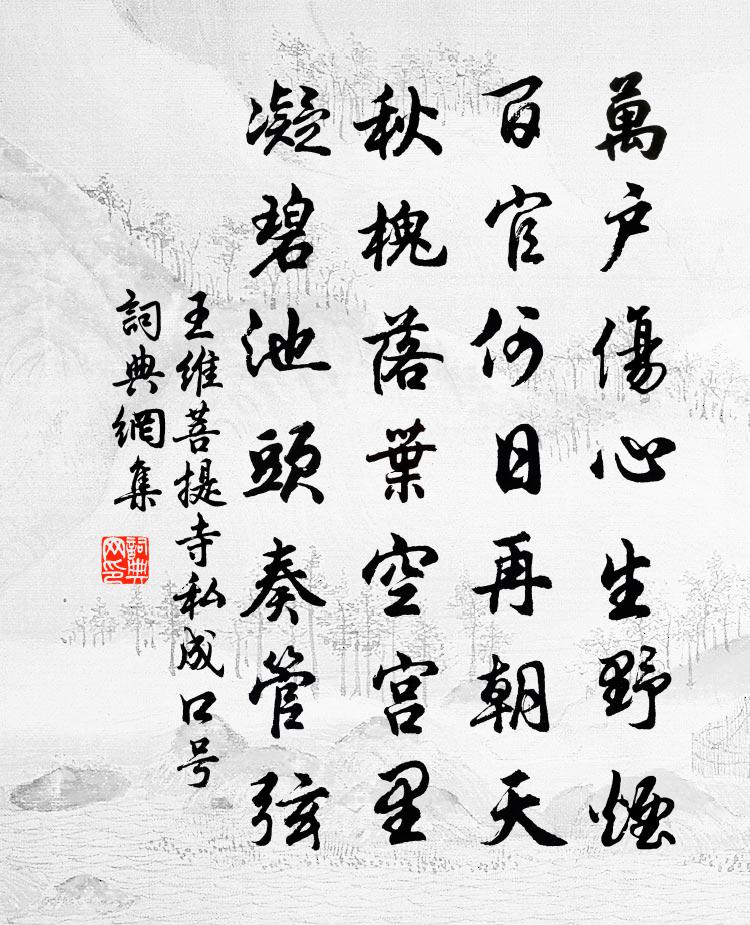 萬戶傷心生野煙
百官何日再朝天
秋槐落葉空宫里
凝碧池頭奏管弦
王维菩提寺私成口号
詞典網集
詞典网印